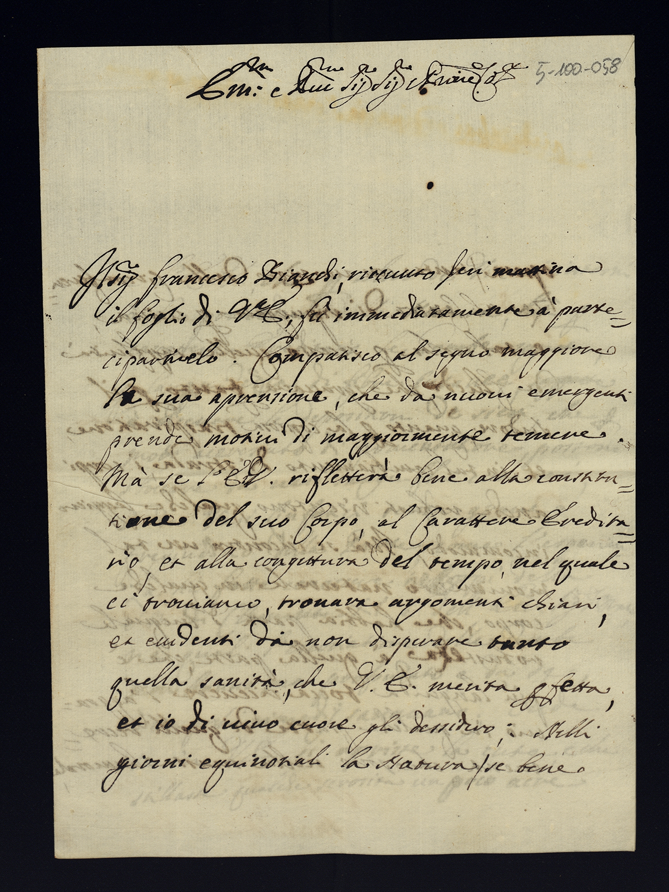 Em:mo e Rmo Sig:r Sig:r
5-100-058
Il Sig:r Francesco Bianchi, ricevuto Jeri mattina
il foglio di V.E., fù immediatamente à parte=
ciparmelo. Compatisco al segno maggiore
la sua aprensione, che da nuovi emergenti
prende motivi di maggiormente temere.
Mà se l'E.V. rifletterà bene alla constitu=
tione del suo Corpo, al Carattere Eredita=
rio, et alla congittura del tempo, nel quale
ci troviamo, trovara argomenti chiari,
et evidenti dà non disperare tanto
quella sanità, che V.E. merita pfetta,
et io di vivo cuore gli dessidero; Nelli
giorni equinotiali la Natura / se bene